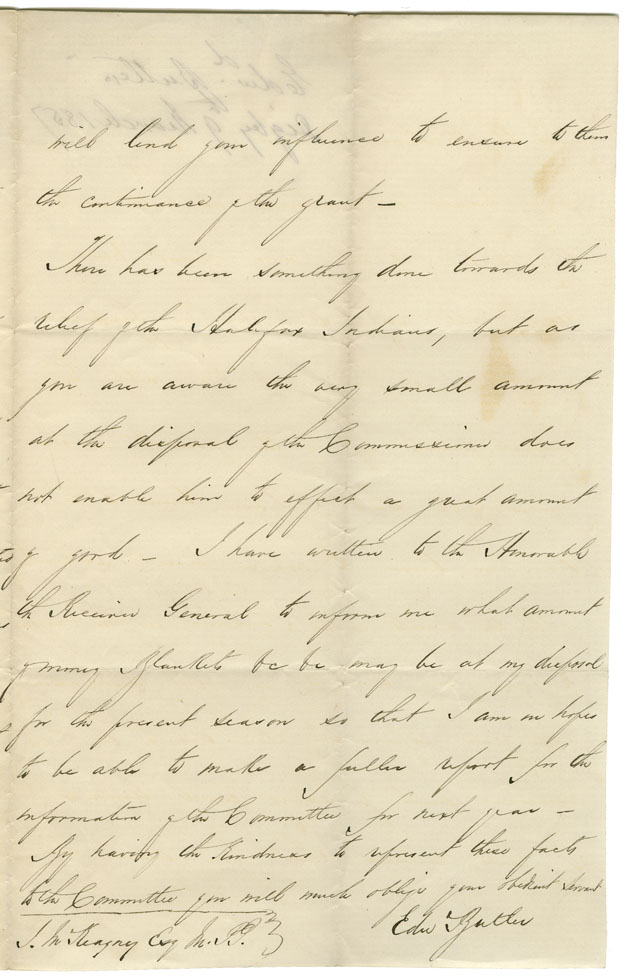 will lend your influence to ensure to them
the continuance of the grant —
There has been something done towards the
relief of the Halifax Indians, but as
you are aware the very small amount
at the disposal of the Commissioner does
not enable him to effect a great amount
of good — I have written to the Honorable
the Receiver General to inform me what amount
of money Blankets &c &c may be at my disposal
for the present season so that I am in hopes
to be able to make a fuller report for the
information of the Committee for next year —
By having the Kindness to represent these facts
to the Committee you will much oblige your obedient Servant
Edw Butler
J. McKeagney Esq M.P.P.